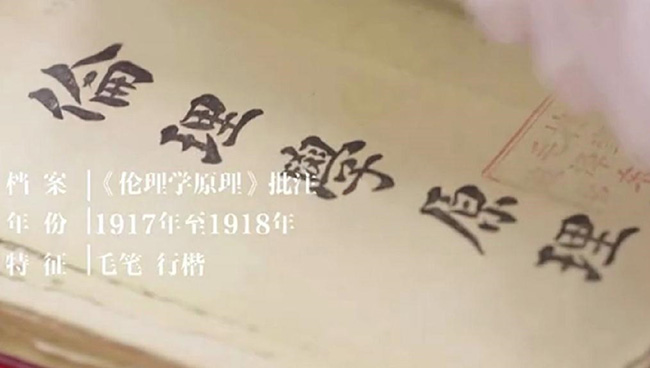 倫理學原理
档案《伦理学原理》批注
年份 1917年至1918年
特征 毛笔 行楷